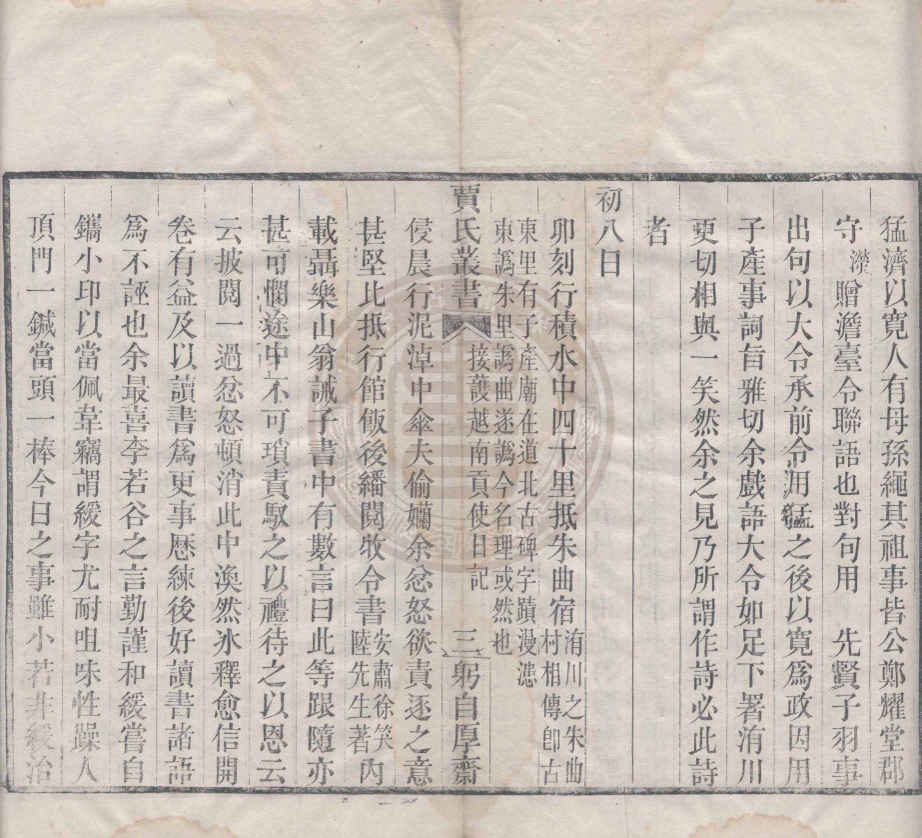 猛濟以寬人有母孫繩其祖事皆公鄭耀堂郡
守濴贈澹臺令聯語也對句用 先賢子羽事
出句以大令承前令用猛之後以寬爲政因用
子產事詞旨雅切余戲語大令如足下署洧川
更切相與一笑然余之見乃所謂作詩必此詩
者
初八日
卯刻行積水中四十里抵朱曲宿洧川之朱曲村相傳卽古
東里有子產廟在道北古碑字蹟漫漶東譌朱里譌曲遂譌今名理或然也
賈氏叢書 接護越南貢使日記 三 躬自厚齋
侵晨行泥淖中傘夫偷孏余忿怒欲責逐之意
甚堅比抵行館飯後繙閱牧令書安肅徐笑陸先生著內
載聶樂山翁誡子書中有數言曰此等跟隨亦
甚可憫途中不可瑣責馭之以禮待之以恩云
云披閱一過忿怒頓消此中渙然冰釋愈信開
卷有益及以讀書爲更事歷練後好讀書諸語
爲不誣也余最喜李若谷之言勤謹和緩嘗自
鐫小印以當佩韋竊謂緩字尤耐咀味性躁人
頂門一鍼當頭一棒今日之事雖小若非緩治